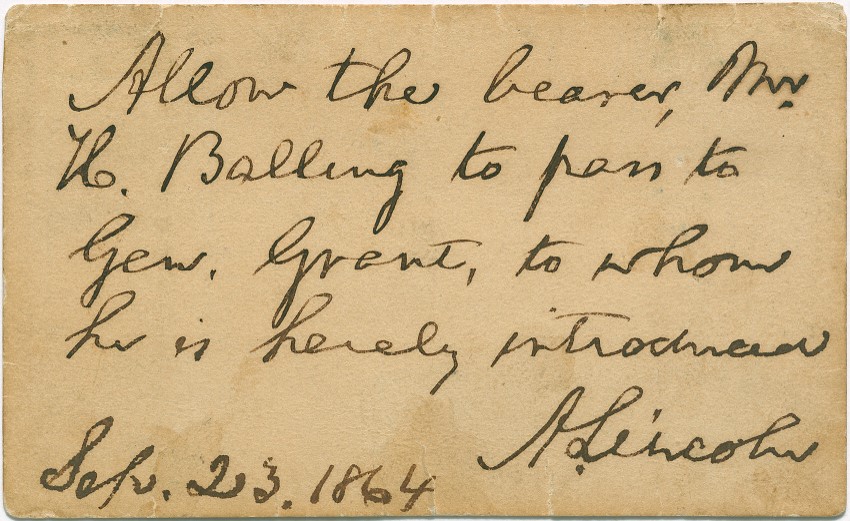 Allow the bearer, Mr.
H. Balling to pass to
Gen. Grant, to whom
he is hereby introduced
A. Lincoln
Sep. 23. 1864